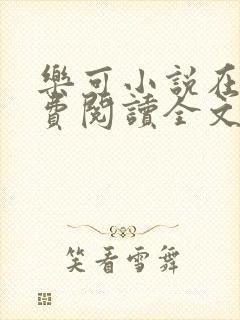 樂可小說在
費閱讀全文
笑看雪舞